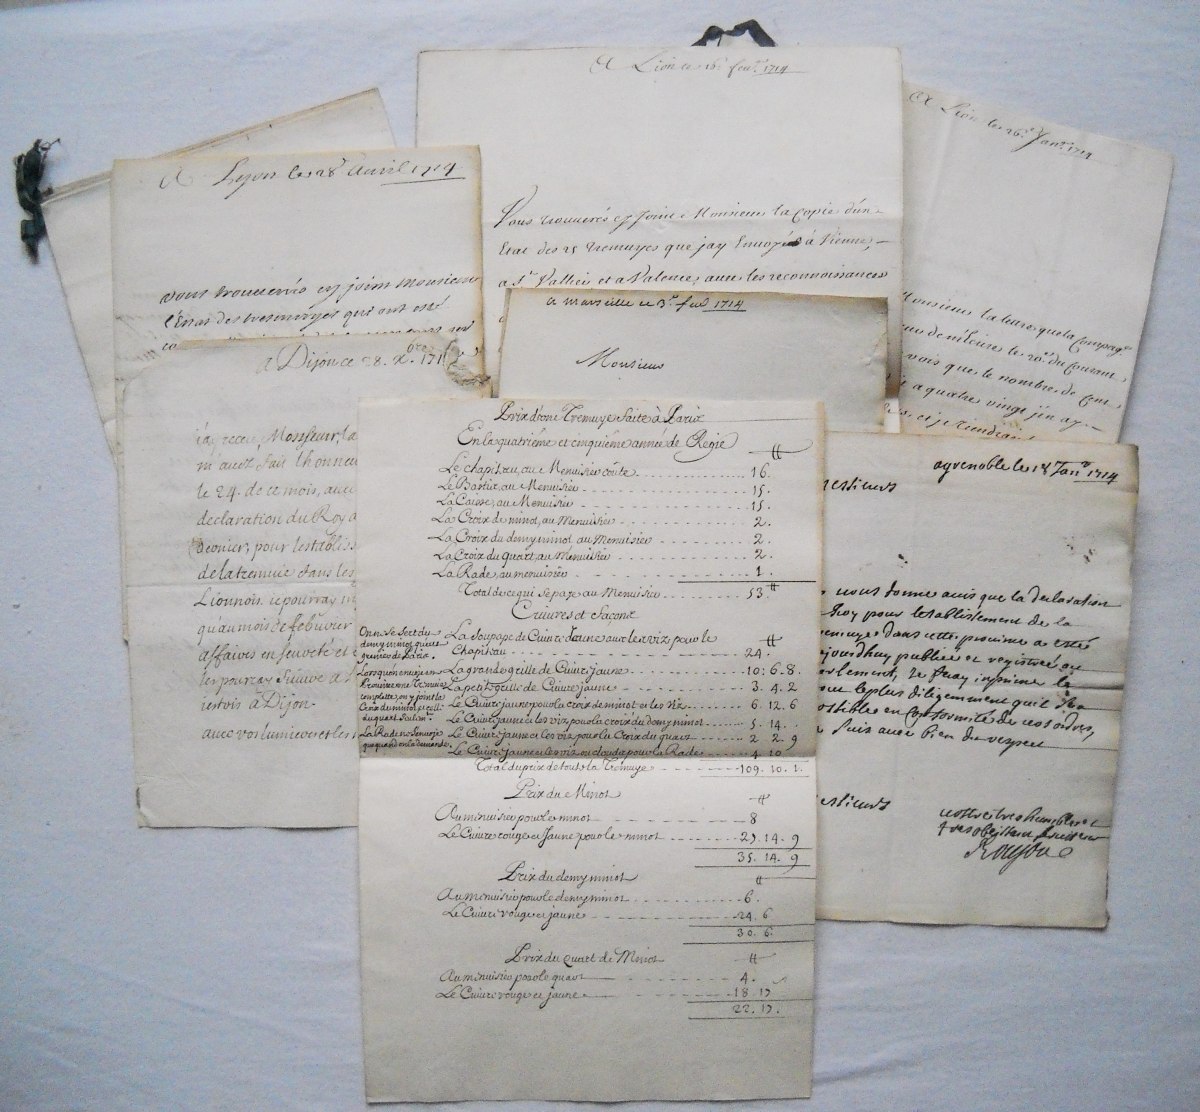 A Lion ce 16e feur. 1714
Vous trouuerés cy joint Monsieur la Copie d'un
Etat des 25 tremuyes que jay Envoyés à Vienne,
a St. Vallier et a Valence, auec les reconnoissances
A Lion le 26e Janr. 1714
Monsieur la lettre que la Compage.
le 20e. du Courant
vois que le nombre de cent
a quatre vingt
et je
A Lyon le 28 Auril 1714
vous trouuerés cy joint Monsieur
l'Etat des tremuyes qui ont esté
a marseille ce 3e. feur. 1714
Monsieur
a Dijon ce 28. Xbre 171
j'ay receu Monsieur, la
m'auez fait l'honneur
le 24. de ce mois, auec
declaration du Roy
dernier, pour l'establiss
de la tremuie dans les
Lionnois. je pourray
qu'au mois de feburier
affaires en seureté et
les pourray suiure a
iestois a Dijon.
auec vos lumieres et les
Prix d'une Tremuye faite à Paris
En la quatriéme et cinquiéme année de Regie
₶
Le chapiteau, au Menuisier coûte 16.
Le Bastis, au Menuisier 15.
La Caisse, au Menuisier 15.
La Croix de minot, au Menuisier 2.
La Croix du demy minot, au Menuisier 2.
La Croix du quart, au Menuisier 2.
La Rade, au menuisier 1.
Total de ce qui se paye au Menuisier 53.₶
Cuivres et façons
On ne se sert du
demy minot qu'aux
greniers de Paris.
Lorsqu'on envoye en
Province une Tremuye
complette, on y joint la
Croix du minot et celle
du quart seulemt.
La Rade ne s'envoye
que quand on la demande.
La soupape de Cuivre Jaune auec les vis, pour le
₶
Chapiteau 24.
La grande grille de Cuivre jaune 10. 6. 8.
La petite grille de Cuivre jaune 3. 4. 2
Le Cuivre jaune pour la croix de minot et les vis 6. 12. 6
Le Cuivre jaune et les vis pour la croix du demy minot 5. 14.
Le Cuivre Jaune et les vis pour la Croix du quart 2 2. 9
Le Cuivre Jaune et les vis ou cloux pour la Rade 4 10
Total du prix de toute la Tremuye 109. 10. 1.
Prix du Minot
₶
Au menuisier pour le minot 8
Le Cuivre rouge et Jaune pour le minot 27. 14. 9
35. 14. 9
Prix du demy minot
₶
Au menuisier pour le demy minot 6.
Le Cuivre rouge et jaune 24. 6
30. 6.
Prix du Quart de Minot
₶
Au menuisier pour le quart 4.
Le Cuivre rouge et jaune 18. 17
22. 17.
a grenoble le 18e Janr. 1714
essieurs
vous donne auis que la declaration
Roy pour l'establissement de la
remuye dans cette prouince a esté
jourdhuy publiée et registrée au
arlement, Je feray inprimer le
le plus diligemment quil sera
ossible en Conformité de vos ordres,
suis auec bien du respect
essieurs
vostre tres humble et
tres obeissant seruiteur